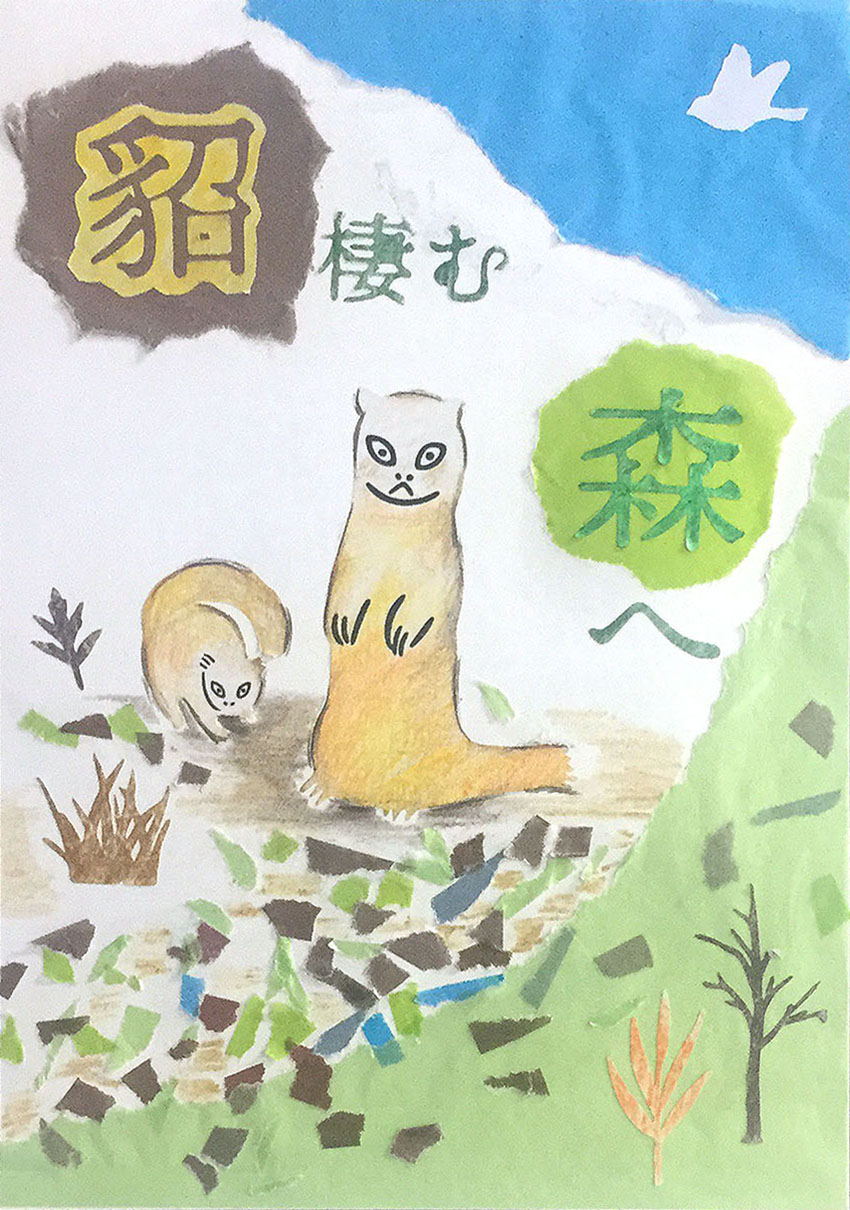 貂棲む
森
へ